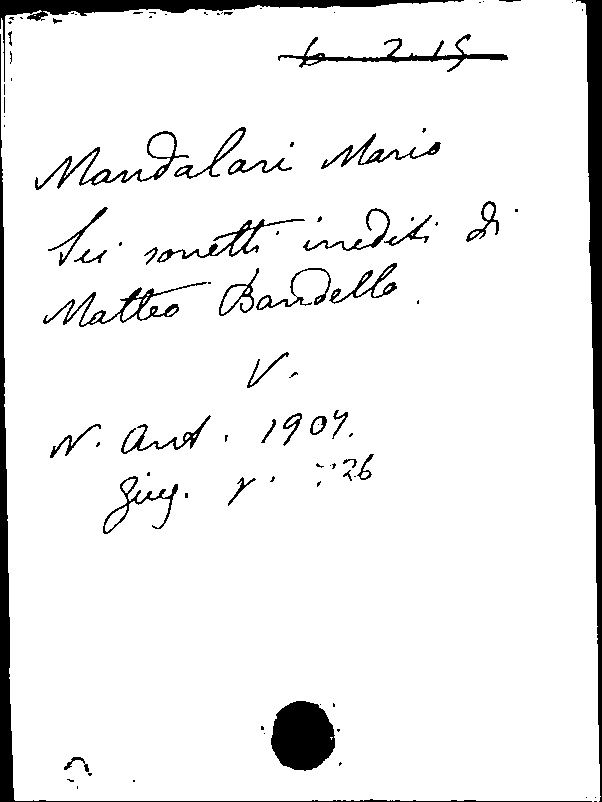 6 2.15
Mandalari Mario
Sei sonetti inediti di
Matteo Bandello.
V.
N. Ant. 1907.
giug. p. 726